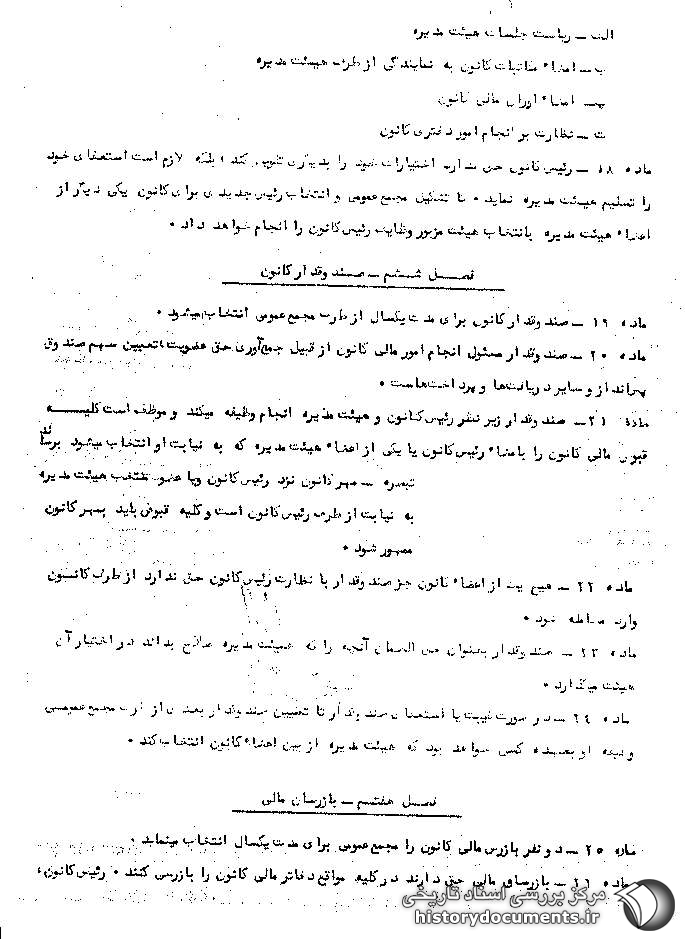 الف ــ ریاست جلسات هیئت مدیره
ب ــ امضاء مکاتبات کانون به نمایندگی از طرف هیئت مدیره
پ ــ امضاء اوراق مالی کانون
ت ــ نظارت بر انجام امور دفتری کانون
ماده ۱۸ ــ رئیس کانون حق ندارد اختیارات خود را بدیگری تفویض کند ؛ بلکه لازم است استعفای خود
را تسلیم هیئت مدیره نماید ۰ تا تشکیل مجمع عمومی و انتخاب رئیس جدیدی برای کانون یکی دیگر از
اعضاء هیئت مدیره بانتخاب هیئت مزبور وظایف رئیس کانون را انجام خواهد داد ۰
فصل ششم ــ صندوقدار کانون
ماده ۱۹ ــ صندوقدار کانون برای مدت یکسال از طرف مجمع عمومی انتخاب میشود ۰
ماده ۲۰ ــ صندوقدار مسئول انجام امور مالی کانون از قبیل جمع‌آوری حق عضویت ، تعیین سهم صندوق
پس‌انداز و سایر دریافت‌ها و پرداخت‌هاست ۰
ماده ۲۱ ــ صندوقدار زیر نظر رئیس کانون و هیئت مدیره انجام وظیفه میکند و موظف است کلیه
قبوض مالی کانون را بامضاء رئیس کانون یا یکی از اعضاء هیئت مدیره که به نیابت او انتخاب میشود برساند
تبصره ــ مهر کانون نزد رئیس کانون ویا عضو منتخب هیئت مدیره
به نیابت از طرف رئیس کانون است و کلیه قبوض باید بمهر کانون
ممهور شود ۰
ماده ۲۲ ــ هیچ یک از اعضاء کانون جز صندوقدار با نظارت رئیس کانون حق ندارد از طرف کانون
وارد معامله شود ۰
ماده ۲۳ ــ صندوقدار بعنوان حق الضمان آنچه را که هیئت مدیره صلاح بداند در اختیار آن
هیئت میگذارد ۰
ماده ۲۴ ــ در صورت غیبت یا استعفای صندوقدار تا تعیین صندوقدار بعدی از طرف مجمع عمومی
وظیفه او بعهده کسی خواهد بود که هیئت مدیره از بین اعضاء کانون انتخاب کند ۰
فصل هفتم ــ بازرسان مالی
ماده ۲۵ ــ دو نفر بازرس مالی کانون را مجمع عمومی برای مدت یکسال انتخاب مینماید ۰
ماده ۲۶ ــ بازرسان مالی حق دارند در کلیه مواقع دفاتر مالی کانون را بازرسی کنند ۰ رئیس کانون ،
مرکز بررسی اسناد تاریخی
historydocuments.ir